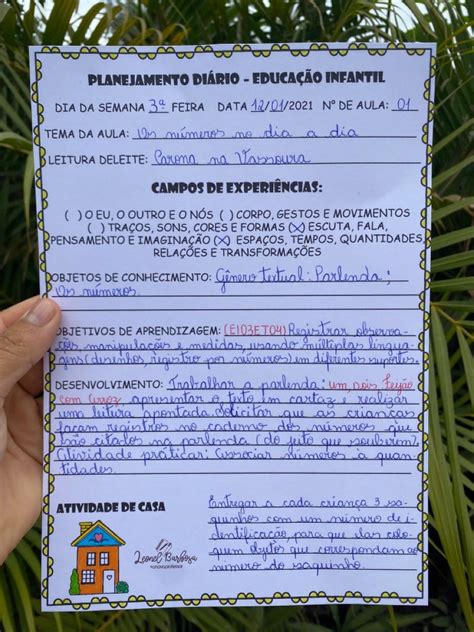 PLANEJAMENTO DIÁRIO - EDUCAÇÃO INFANTIL
DIA DA SEMANA 3ª FEIRA DATA 12/01/2021 Nº DE AULA: 01
TEMA DA AULA: Os números no dia a dia
LEITURA DELEITE: Carona na Vassoura
CAMPOS DE EXPERIÊNCIAS:
( ) O EU, O OUTRO E O NÓS ( ) CORPO, GESTOS E MOVIMENTOS
( ) TRAÇOS, SONS, CORES E FORMAS (X) ESCUTA, FALA,
PENSAMENTO E IMAGINAÇÃO (X) ESPAÇOS, TEMPOS, QUANTIDADES,
RELAÇÕES E TRANSFORMAÇÕES
OBJETOS DE CONHECIMENTO: Gênero textual: Parlenda;
Os números.
OBJETIVOS DE APRENDIZAGEM: (EI03ET04) Registrar observa-
ções, manipulações e medidas, usando múltiplas lingua-
gens (desenhos, registro por números) em diferentes suportes.
DESENVOLVIMENTO: Trabalhar a parlenda: um, dois feijão
com arroz, apresentar o texto em cartaz e realizar
uma leitura apontada. Solicitar que as crianças
façam registros no caderno dos números que
são citados na parlenda (do jeito que souberem).
Atividade prática: Associar números à quan-
tidades.
ATIVIDADE DE CASA
Entregar a cada criança 3 sa-
quinhos com um número de i-
dentificação, para que elas colo-
quem objetos que correspondam ao
número do saquinho.
Leonel Barbosa